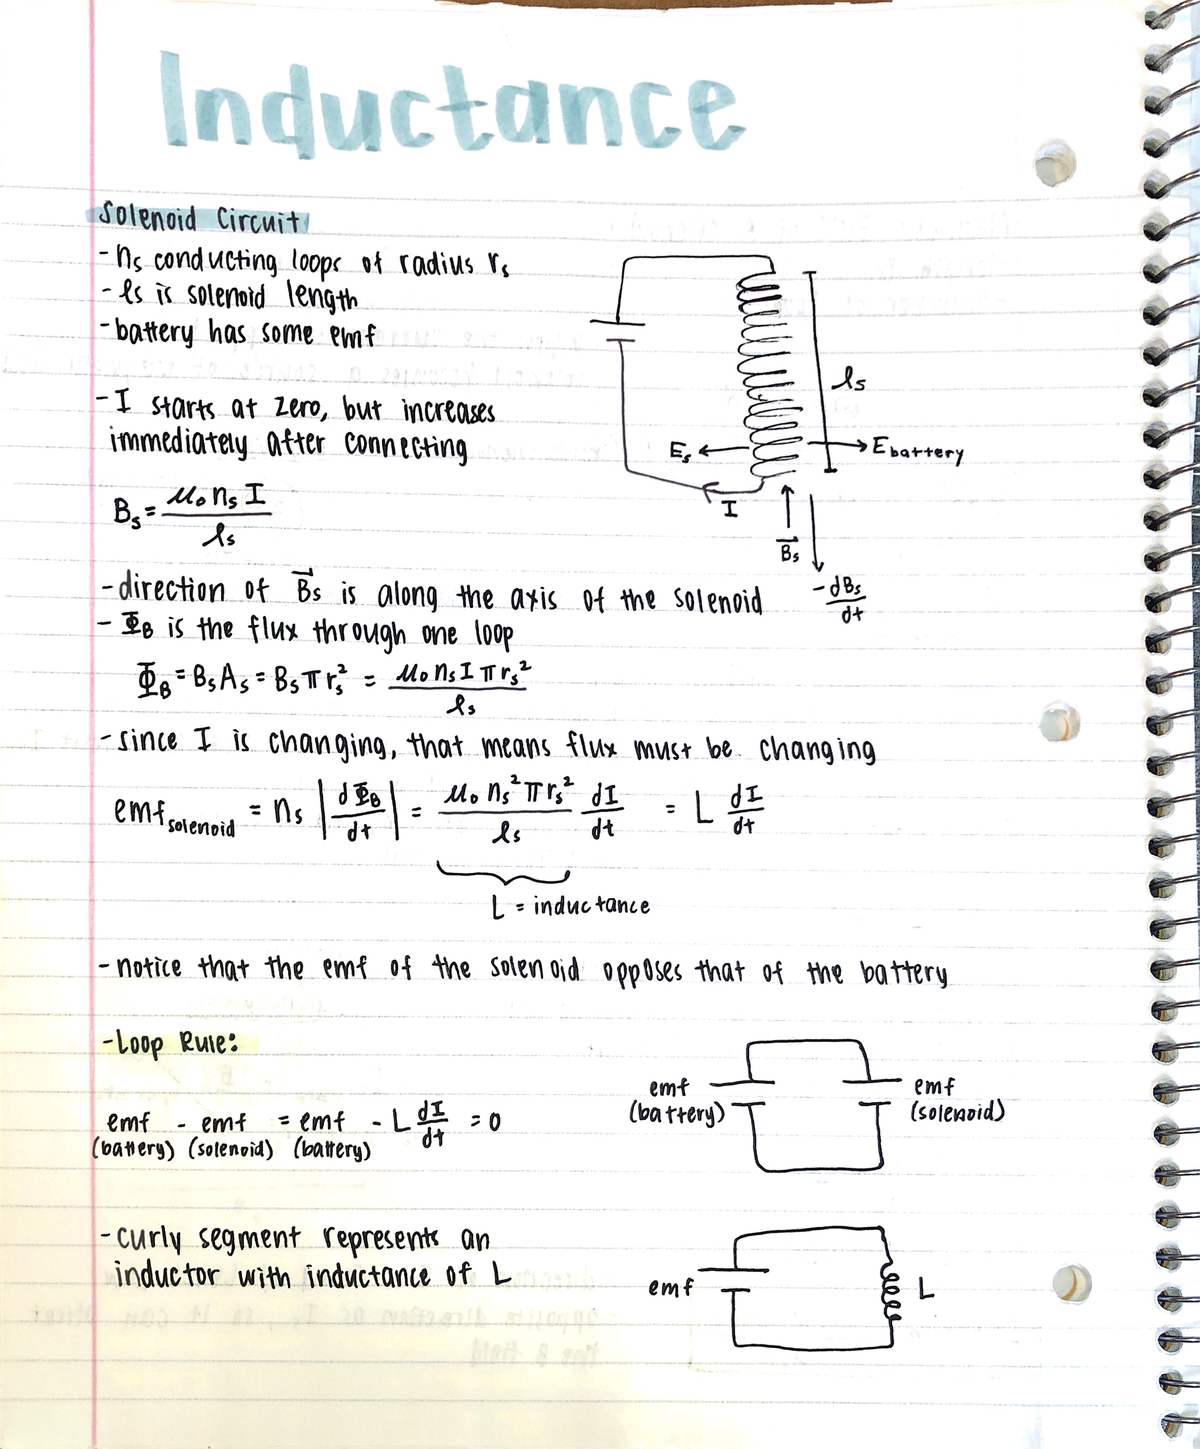 Inductance
Solenoid Circuit
- ns conducting loops of radius rs
- ℓs is solenoid length
- battery has some emf
- I starts at zero, but increases
immediately after connecting
Bs = μ₀ ns I / ℓs
ℓs
Es
E battery
I
B⃗s
- dBs / dt
- direction of B⃗s is along the axis of the solenoid
- ΦB is the flux through one loop
ΦB = Bs As = Bs π rs² = μ₀ ns I π rs² / ℓs
- since I is changing, that means flux must be changing
emf solenoid = ns |dΦB / dt| = μ₀ ns² π rs² / ℓs dI / dt = L dI / dt
L = inductance
- notice that the emf of the solenoid opposes that of the battery
- Loop Rule:
emf (battery) - emf (solenoid) = emf (battery) - L dI / dt = 0
emf
(battery)
emf
(solenoid)
- curly segment represents an
inductor with inductance of L
emf
L